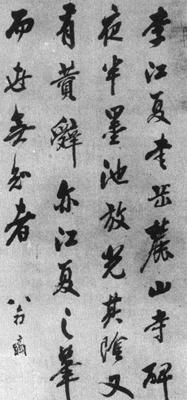 李江夏書岳麓山寺碑
夜半墨池放光其陰又
有黃辭亦江夏之筆
而世無知者